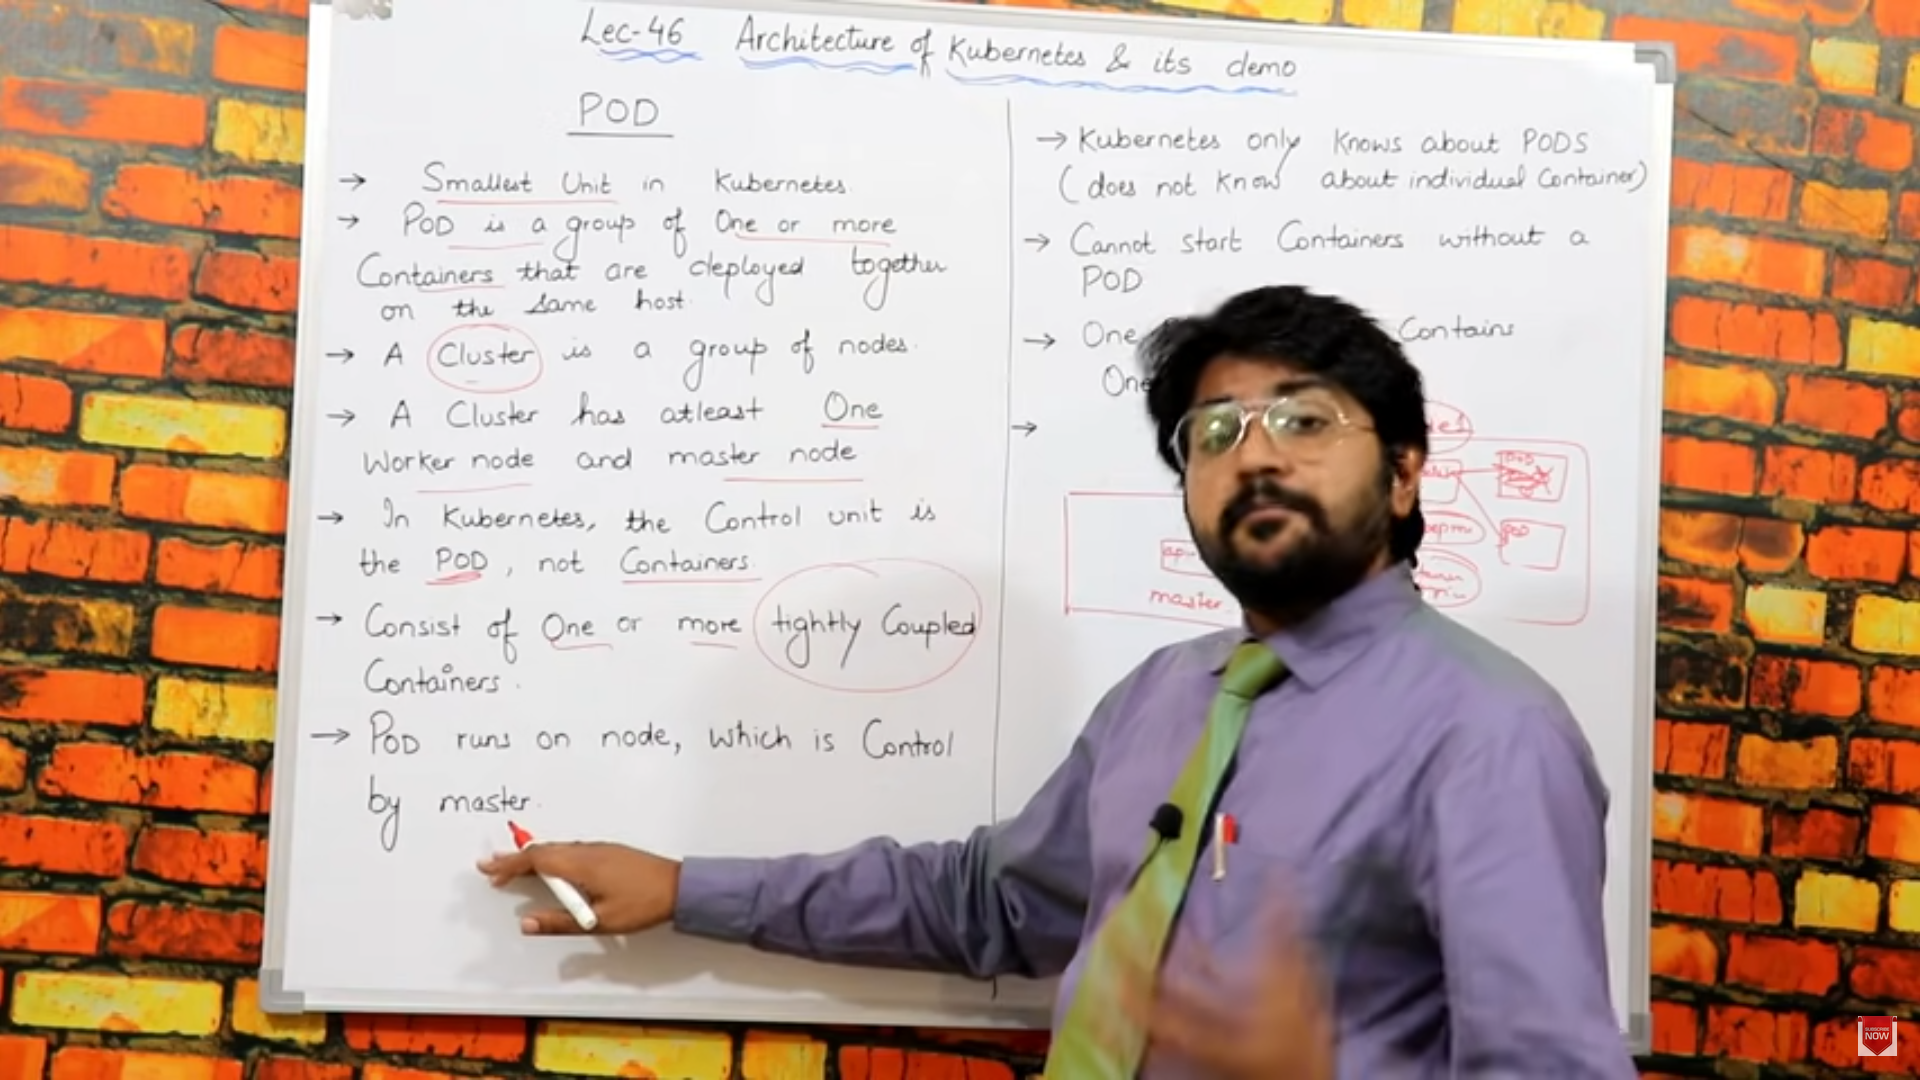 Lec-46 Architecture of Kubernetes & its demo
POD
→ Smallest Unit in Kubernetes.
→ POD is a group of One or more
Containers that are deployed together
on the same host.
→ A Cluster is a group of nodes.
→ A Cluster has atleast One
Worker node and master node
→ In Kubernetes, the Control unit is
the POD, not Containers.
→ Consist of One or more tightly Coupled
Containers.
→ POD runs on node, which is Control
by master.
→ Kubernetes only Knows about PODS
(does not Know about individual Container)
→ Cannot start Containers without a
POD
→ One Contains
One
→
POD
POD
api-
master
SUBSCRIBE
NOW